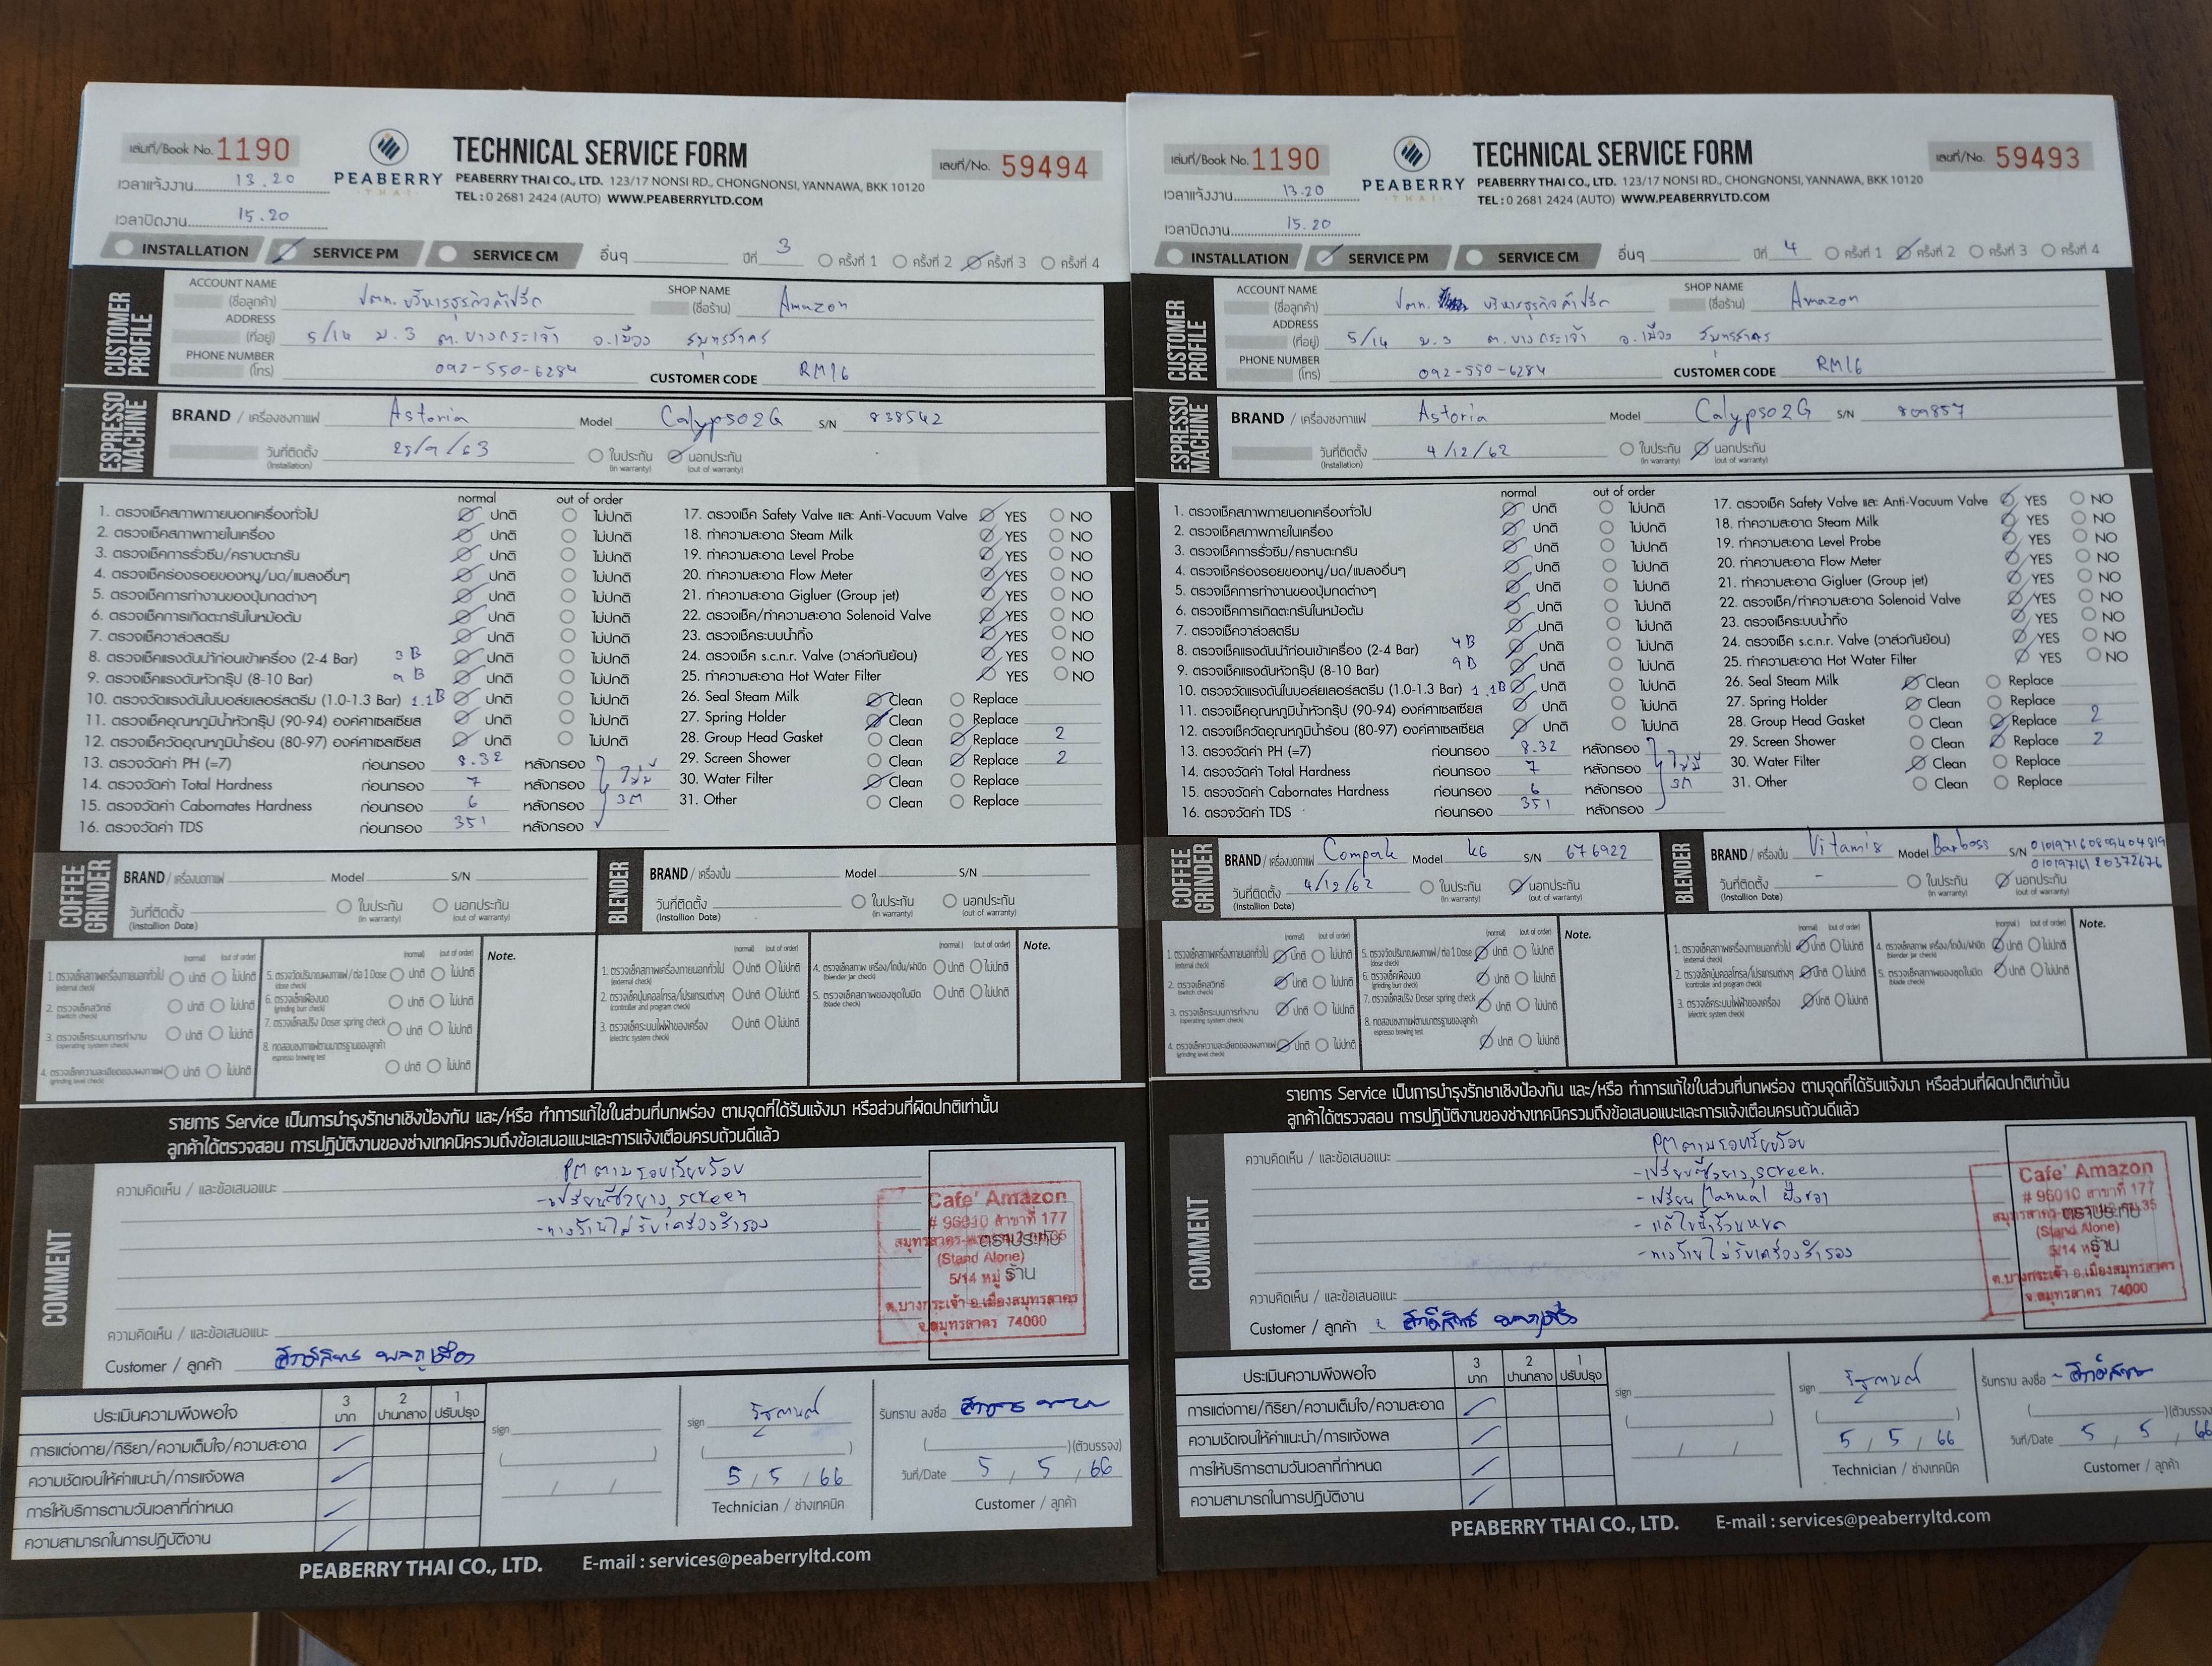 เล่มที่/Book No. 1190
PEABERRY
THAI
TECHNICAL SERVICE FORM
PEABERRY THAI CO., LTD. 123/17 NONSI RD., CHONGNONSI, YANNAWA, BKK 10120
TEL : 0 2681 2424 (AUTO) WWW.PEABERRYLTD.COM
เลขที่/No. 59494
เวลาแจ้งงาน 13.20
เวลาปิดงาน 15.20
INSTALLATION SERVICE PM SERVICE CM อื่นๆ ปีที่ 3 ครั้งที่ 1 ครั้งที่ 2 ครั้งที่ 3 ครั้งที่ 4
CUSTOMER PROFILE
ACCOUNT NAME (ชื่อลูกค้า) ปตท. บริหารธุรกิจค้าปลีก SHOP NAME (ชื่อร้าน) Amazon
ADDRESS (ที่อยู่) 5/14 ม.3 ต.บางกระเจ้า อ.เมือง สมุทรสาคร
PHONE NUMBER (โทร) 092-550-6284 CUSTOMER CODE RM16
ESPRESSO MACHINE
BRAND / เครื่องชงกาแฟ Astoria Model Calypso2G S/N 838542
วันที่ติดตั้ง (Installation) 25/9/63 ในประกัน (in warranty) นอกประกัน (out of warranty)
normal out of order
1. ตรวจเช็คสภาพภายนอกเครื่องทั่วไป ปกติ ไม่ปกติ
2. ตรวจเช็คสภาพภายในเครื่อง ปกติ ไม่ปกติ
3. ตรวจเช็คการรั่วซึม/คราบตะกรัน ปกติ ไม่ปกติ
4. ตรวจเช็คร่องรอยของหนู/มด/แมลงอื่นๆ ปกติ ไม่ปกติ
5. ตรวจเช็คการทำงานของปุ่มกดต่างๆ ปกติ ไม่ปกติ
6. ตรวจเช็คการเกิดตะกรันในหม้อต้ม ปกติ ไม่ปกติ
7. ตรวจเช็ควาล์วสตรีม ปกติ ไม่ปกติ
8. ตรวจเช็คแรงดันน้ำก่อนเข้าเครื่อง (2-4 Bar) 3 B ปกติ ไม่ปกติ
9. ตรวจเช็คแรงดันหัวกรุ๊ป (8-10 Bar) 9 B ปกติ ไม่ปกติ
10. ตรวจวัดแรงดันในบอล์ยเลอร์สตรีม (1.0-1.3 Bar) 1.1B ปกติ ไม่ปกติ
11. ตรวจเช็คอุณหภูมิน้ำหัวกรุ๊ป (90-94) องค์ศาเซลเซียส ปกติ ไม่ปกติ
12. ตรวจเช็ควัดอุณหภูมิน้ำร้อน (80-97) องค์ศาเซลเซียส ปกติ ไม่ปกติ
13. ตรวจวัดค่า PH (=7) ก่อนกรอง 8.32 หลังกรอง ไม่มี
14. ตรวจวัดค่า Total Hardness ก่อนกรอง 7 หลังกรอง
15. ตรวจวัดค่า Cabornates Hardness ก่อนกรอง 6 หลังกรอง 3M
16. ตรวจวัดค่า TDS ก่อนกรอง 351 หลังกรอง
17. ตรวจเช็ค Safety Valve และ Anti-Vacuum Valve YES NO
18. ทำความสะอาด Steam Milk YES NO
19. ทำความสะอาด Level Probe YES NO
20. ทำความสะอาด Flow Meter YES NO
21. ทำความสะอาด Gigluer (Group jet) YES NO
22. ตรวจเช็ค/ทำความสะอาด Solenoid Valve YES NO
23. ตรวจเช็คระบบน้ำทิ้ง YES NO
24. ตรวจเช็ค s.c.n.r. Valve (วาล์วกันย้อน) YES NO
25. ทำความสะอาด Hot Water Filter YES NO
26. Seal Steam Milk Clean Replace
27. Spring Holder Clean Replace
28. Group Head Gasket Clean Replace 2
29. Screen Shower Clean Replace 2
30. Water Filter Clean Replace
31. Other Clean Replace
COFFEE GRINDER
BRAND / เครื่องบดกาแฟ Model S/N
วันที่ติดตั้ง (Installion Date) ในประกัน (in warranty) นอกประกัน (out of warranty)
BLENDER
BRAND / เครื่องปั่น Model S/N
วันที่ติดตั้ง (Installion Date) ในประกัน (in warranty) นอกประกัน (out of warranty)
(normal) (out of order)
1. ตรวจเช็คสภาพเครื่องภายนอกทั่วไป (external check) ปกติ ไม่ปกติ
2. ตรวจเช็คสวิทซ์ (switch check) ปกติ ไม่ปกติ
3. ตรวจเช็คระบบการทำงาน (operating system check) ปกติ ไม่ปกติ
4. ตรวจเช็คความละเอียดของผงกาแฟ (grinding level check) ปกติ ไม่ปกติ
5. ตรวจวัดปริมาณผงกาแฟ/ต่อ 1 Dose (dose check) ปกติ ไม่ปกติ
6. ตรวจเช็คเฟืองบด (grinding burr check) ปกติ ไม่ปกติ
7. ตรวจเช็คสปริง Doser spring check ปกติ ไม่ปกติ
8. ทดสอบชงกาแฟตามมาตรฐานของลูกค้า espresso brewing test ปกติ ไม่ปกติ
Note.
1. ตรวจเช็คสภาพเครื่องภายนอกทั่วไป (external check) ปกติ ไม่ปกติ
2. ตรวจเช็คปุ่มคอลโทรล/โปรแกรมต่างๆ (controller and program check) ปกติ ไม่ปกติ
3. ตรวจเช็คระบบไฟฟ้าของเครื่อง (electric system check) ปกติ ไม่ปกติ
4. ตรวจเช็คสภาพ เครื่อง/โถปั่น/ฝาปิด (blender jar check) ปกติ ไม่ปกติ
5. ตรวจเช็คสภาพของชุดใบมีด (blade check) ปกติ ไม่ปกติ
Note.
รายการ Service เป็นการบำรุงรักษาเชิงป้องกัน และ/หรือ ทำการแก้ไขในส่วนที่บกพร่อง ตามจุดที่ได้รับแจ้งมา หรือส่วนที่ผิดปกติเท่านั้น
ลูกค้าได้ตรวจสอบ การปฏิบัติงานของช่างเทคนิครวมถึงข้อเสนอแนะและการแจ้งเตือนครบถ้วนดีแล้ว
COMMENT
ความคิดเห็น / และข้อเสนอแนะ PM ตามรอบเรียบร้อย
-เปลี่ยนซีลยาง, screen
-ทางร้านไม่รับเครื่องสำรอง
ตราประทับ
ร้าน
Cafe' Amazon
# 96010 สาขาที่ 177
(Stand Alone)
5/14 หมู่
ต.บางกระเจ้า อ.เมืองสมุทรสาคร
จ.สมุทรสาคร 74000
ความคิดเห็น / และข้อเสนอแนะ
Customer / ลูกค้า
ประเมินความพึงพอใจ 3 มาก 2 ปานกลาง 1 ปรับปรุง
การแต่งกาย/กิริยา/ความเต็มใจ/ความสะอาด
ความชัดเจนให้คำแนะนำ/การแจ้งผล
การให้บริการตามวันเวลาที่กำหนด
ความสามารถในการปฏิบัติงาน
sign
sign
5 / 5 / 66
Technician / ช่างเทคนิค
รับทราบ ลงชื่อ
(ตัวบรรจง)
วันที่/Date 5 / 5 / 66
Customer / ลูกค้า
PEABERRY THAI CO., LTD. E-mail : services@peaberryltd.com
เล่มที่/Book No. 1190
PEABERRY
THAI
TECHNICAL SERVICE FORM
PEABERRY THAI CO., LTD. 123/17 NONSI RD., CHONGNONSI, YANNAWA, BKK 10120
TEL : 0 2681 2424 (AUTO) WWW.PEABERRYLTD.COM
เลขที่/No. 59493
เวลาแจ้งงาน 13.20
เวลาปิดงาน 15.20
INSTALLATION SERVICE PM SERVICE CM อื่นๆ ปีที่ 4 ครั้งที่ 1 ครั้งที่ 2 ครั้งที่ 3 ครั้งที่ 4
CUSTOMER PROFILE
ACCOUNT NAME (ชื่อลูกค้า) ปตท. บริหารธุรกิจค้าปลีก SHOP NAME (ชื่อร้าน) Amazon
ADDRESS (ที่อยู่) 5/14 ม.3 ต.บางกระเจ้า อ.เมือง สมุทรสาคร
PHONE NUMBER (โทร) 092-550-6284 CUSTOMER CODE RM16
ESPRESSO MACHINE
BRAND / เครื่องชงกาแฟ Astoria Model Calypso2G S/N 809857
วันที่ติดตั้ง (Installation) 4/12/62 ในประกัน (in warranty) นอกประกัน (out of warranty)
normal out of order
1. ตรวจเช็คสภาพภายนอกเครื่องทั่วไป ปกติ ไม่ปกติ
2. ตรวจเช็คสภาพภายในเครื่อง ปกติ ไม่ปกติ
3. ตรวจเช็คการรั่วซึม/คราบตะกรัน ปกติ ไม่ปกติ
4. ตรวจเช็คร่องรอยของหนู/มด/แมลงอื่นๆ ปกติ ไม่ปกติ
5. ตรวจเช็คการทำงานของปุ่มกดต่างๆ ปกติ ไม่ปกติ
6. ตรวจเช็คการเกิดตะกรันในหม้อต้ม ปกติ ไม่ปกติ
7. ตรวจเช็ควาล์วสตรีม ปกติ ไม่ปกติ
8. ตรวจเช็คแรงดันน้ำก่อนเข้าเครื่อง (2-4 Bar) 4 B ปกติ ไม่ปกติ
9. ตรวจเช็คแรงดันหัวกรุ๊ป (8-10 Bar) 9 B ปกติ ไม่ปกติ
10. ตรวจวัดแรงดันในบอล์ยเลอร์สตรีม (1.0-1.3 Bar) 1.1B ปกติ ไม่ปกติ
11. ตรวจเช็คอุณหภูมิน้ำหัวกรุ๊ป (90-94) องค์ศาเซลเซียส ปกติ ไม่ปกติ
12. ตรวจเช็ควัดอุณหภูมิน้ำร้อน (80-97) องค์ศาเซลเซียส ปกติ ไม่ปกติ
13. ตรวจวัดค่า PH (=7) ก่อนกรอง 8.32 หลังกรอง
14. ตรวจวัดค่า Total Hardness ก่อนกรอง 7 หลังกรอง ไม่มี
15. ตรวจวัดค่า Cabornates Hardness ก่อนกรอง 6 หลังกรอง 3M
16. ตรวจวัดค่า TDS ก่อนกรอง 351 หลังกรอง
17. ตรวจเช็ค Safety Valve และ Anti-Vacuum Valve YES NO
18. ทำความสะอาด Steam Milk YES NO
19. ทำความสะอาด Level Probe YES NO
20. ทำความสะอาด Flow Meter YES NO
21. ทำความสะอาด Gigluer (Group jet) YES NO
22. ตรวจเช็ค/ทำความสะอาด Solenoid Valve YES NO
23. ตรวจเช็คระบบน้ำทิ้ง YES NO
24. ตรวจเช็ค s.c.n.r. Valve (วาล์วกันย้อน) YES NO
25. ทำความสะอาด Hot Water Filter YES NO
26. Seal Steam Milk Clean Replace
27. Spring Holder Clean Replace
28. Group Head Gasket Clean Replace 2
29. Screen Shower Clean Replace 2
30. Water Filter Clean Replace
31. Other Clean Replace
COFFEE GRINDER
BRAND / เครื่องบดกาแฟ Compak Model K6 S/N 676922
วันที่ติดตั้ง (Installion Date) 4/12/62 ในประกัน (in warranty) นอกประกัน (out of warranty)
BLENDER
BRAND / เครื่องปั่น Vitamix Model Barboss S/N
วันที่ติดตั้ง (Installion Date) - ในประกัน (in warranty) นอกประกัน (out of warranty)
(normal) (out of order)
1. ตรวจเช็คสภาพเครื่องภายนอกทั่วไป (external check) ปกติ ไม่ปกติ
2. ตรวจเช็คสวิทซ์ (switch check) ปกติ ไม่ปกติ
3. ตรวจเช็คระบบการทำงาน (operating system check) ปกติ ไม่ปกติ
4. ตรวจเช็คความละเอียดของผงกาแฟ (grinding level check) ปกติ ไม่ปกติ
5. ตรวจวัดปริมาณผงกาแฟ/ต่อ 1 Dose (dose check) ปกติ ไม่ปกติ
6. ตรวจเช็คเฟืองบด (grinding burr check) ปกติ ไม่ปกติ
7. ตรวจเช็คสปริง Doser spring check ปกติ ไม่ปกติ
8. ทดสอบชงกาแฟตามมาตรฐานของลูกค้า espresso brewing test ปกติ ไม่ปกติ
Note.
1. ตรวจเช็คสภาพเครื่องภายนอกทั่วไป (external check) ปกติ ไม่ปกติ
2. ตรวจเช็คปุ่มคอลโทรล/โปรแกรมต่างๆ (controller and program check) ปกติ ไม่ปกติ
3. ตรวจเช็คระบบไฟฟ้าของเครื่อง (electric system check) ปกติ ไม่ปกติ
4. ตรวจเช็คสภาพ เครื่อง/โถปั่น/ฝาปิด (blender jar check) ปกติ ไม่ปกติ
5. ตรวจเช็คสภาพของชุดใบมีด (blade check) ปกติ ไม่ปกติ
Note.
รายการ Service เป็นการบำรุงรักษาเชิงป้องกัน และ/หรือ ทำการแก้ไขในส่วนที่บกพร่อง ตามจุดที่ได้รับแจ้งมา หรือส่วนที่ผิดปกติเท่านั้น
ลูกค้าได้ตรวจสอบ การปฏิบัติงานของช่างเทคนิครวมถึงข้อเสนอแนะและการแจ้งเตือนครบถ้วนดีแล้ว
COMMENT
ความคิดเห็น / และข้อเสนอแนะ PM ตามรอบเรียบร้อย
-เปลี่ยนซีลยาง, screen.
-เปลี่ยน Manual ฝั่งขวา
-แก้ไขน้ำร้อนหยด
-ทางร้านไม่รับเครื่องสำรอง
ตราประทับ
ร้าน
Cafe' Amazon
# 96010 สาขาที่ 177
(Stand Alone)
5/14 หมู่
ต.บางกระเจ้า อ.เมืองสมุทรสาคร
จ.สมุทรสาคร 74000
ความคิดเห็น / และข้อเสนอแนะ
Customer / ลูกค้า
ประเมินความพึงพอใจ 3 มาก 2 ปานกลาง 1 ปรับปรุง
การแต่งกาย/กิริยา/ความเต็มใจ/ความสะอาด
ความชัดเจนให้คำแนะนำ/การแจ้งผล
การให้บริการตามวันเวลาที่กำหนด
ความสามารถในการปฏิบัติงาน
sign
sign
5 / 5 / 66
Technician / ช่างเทคนิค
รับทราบ ลงชื่อ
(ตัวบรรจง
วันที่/Date 5 / 5 / 66
Customer / ลูกค้า
PEABERRY THAI CO., LTD. E-mail : services@peaberryltd.com